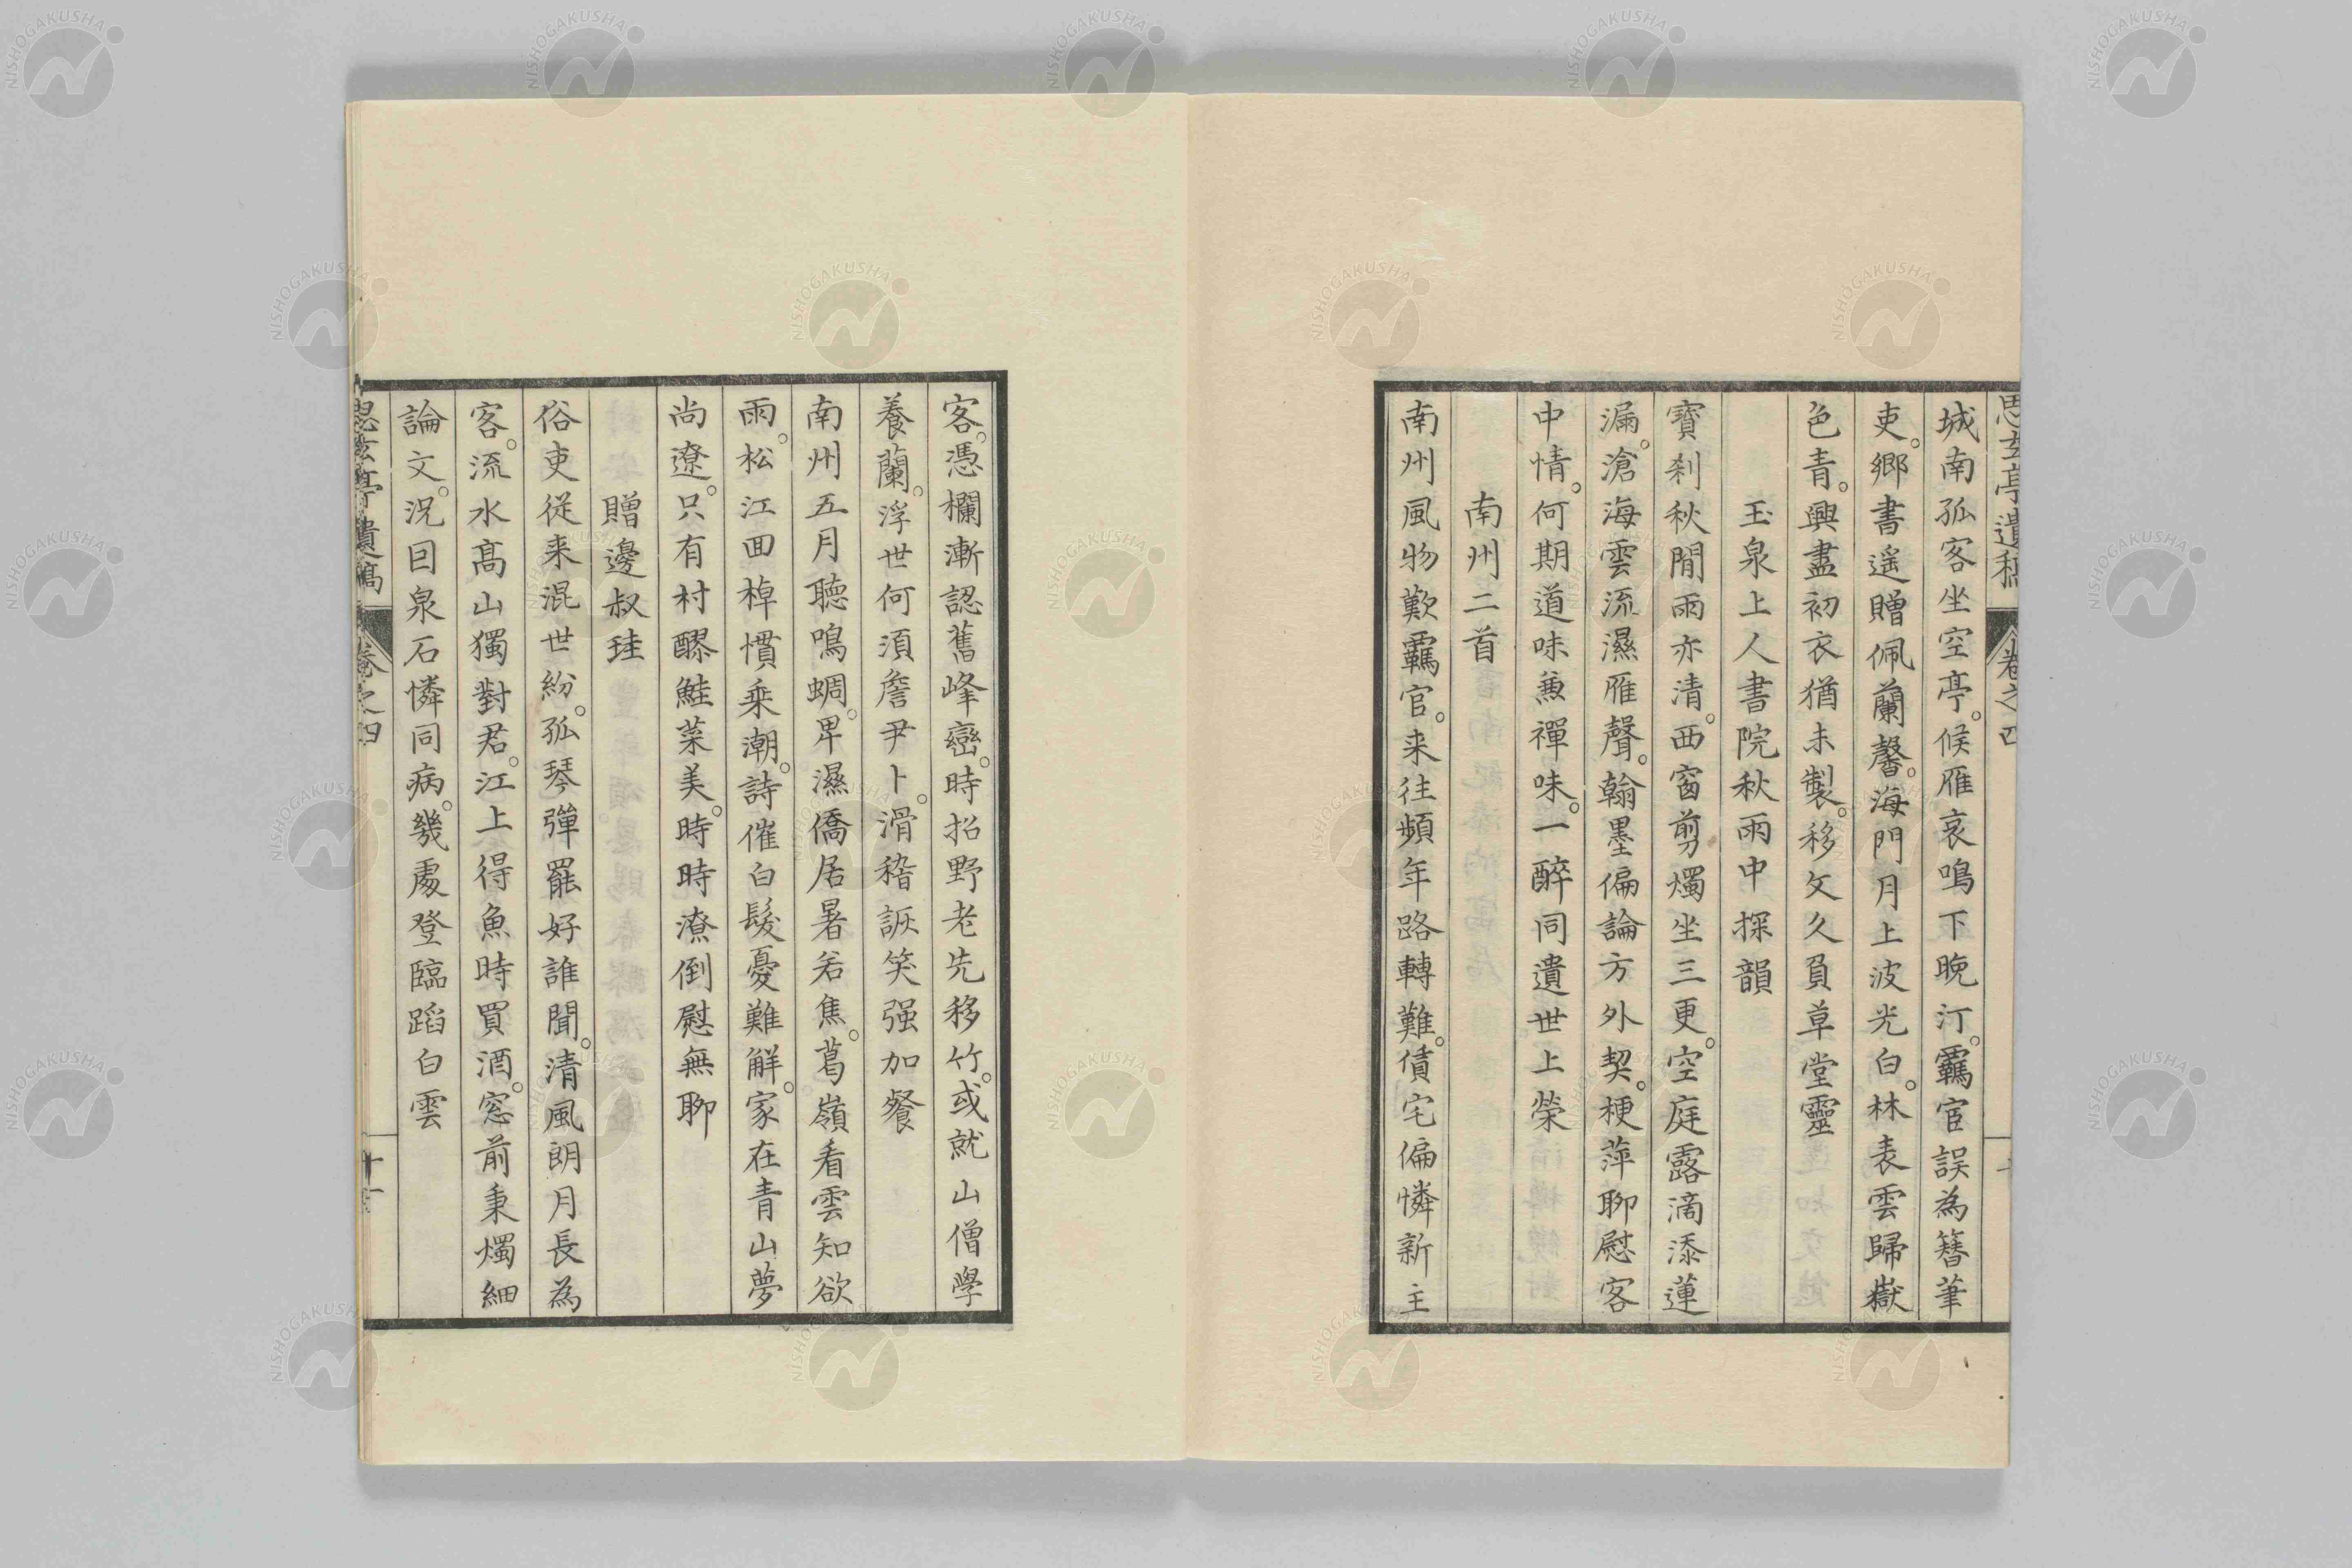 城南孤客坐空亭。候雁哀鳴下晚汀。羈宦誤為簪筆
吏。鄉書遥贈佩蘭馨。海門月上波光白。林表雲歸嶽
色青。興盡初衣猶未製。移文久負草堂靈
玉泉上人書院秋雨中探韻
寶刹秋閒雨亦清。西窗剪燭坐三更。空庭露滴添蓮
漏。滄海雲流濕雁聲。翰墨偏論方外契。梗萍聊慰客
中情。何期道味兼禪味。一醉同遺世上榮
南州二首
南州風物歎羈官。来往頻年路轉難。債宅偏憐新主
客。憑欄漸認舊峰巒。時招野老先移竹。或就山僧學
養蘭。浮世何須詹尹卜。滑稽詼笑强加餐
南州五月聽鳴蜩。卑濕僑居暑若焦。葛嶺看雲知欲
雨。松江回棹慣乘潮。詩催白髮憂難解。家在青山夢
尚遼。只有村醪鮭菜美。時時潦倒慰無聊
贈邊叔珪
俗吏従来混世紛。孤琴彈罷好誰聞。清風朗月長為
客。流水髙山獨對君。江上得魚時買酒。窓前秉燭細
論文。況因泉石憐同病。幾處登臨蹈白雲
思玄亭遺稿 卷之四
思玄亭遺稿 卷之四 十一
NISHOGAKUSHA